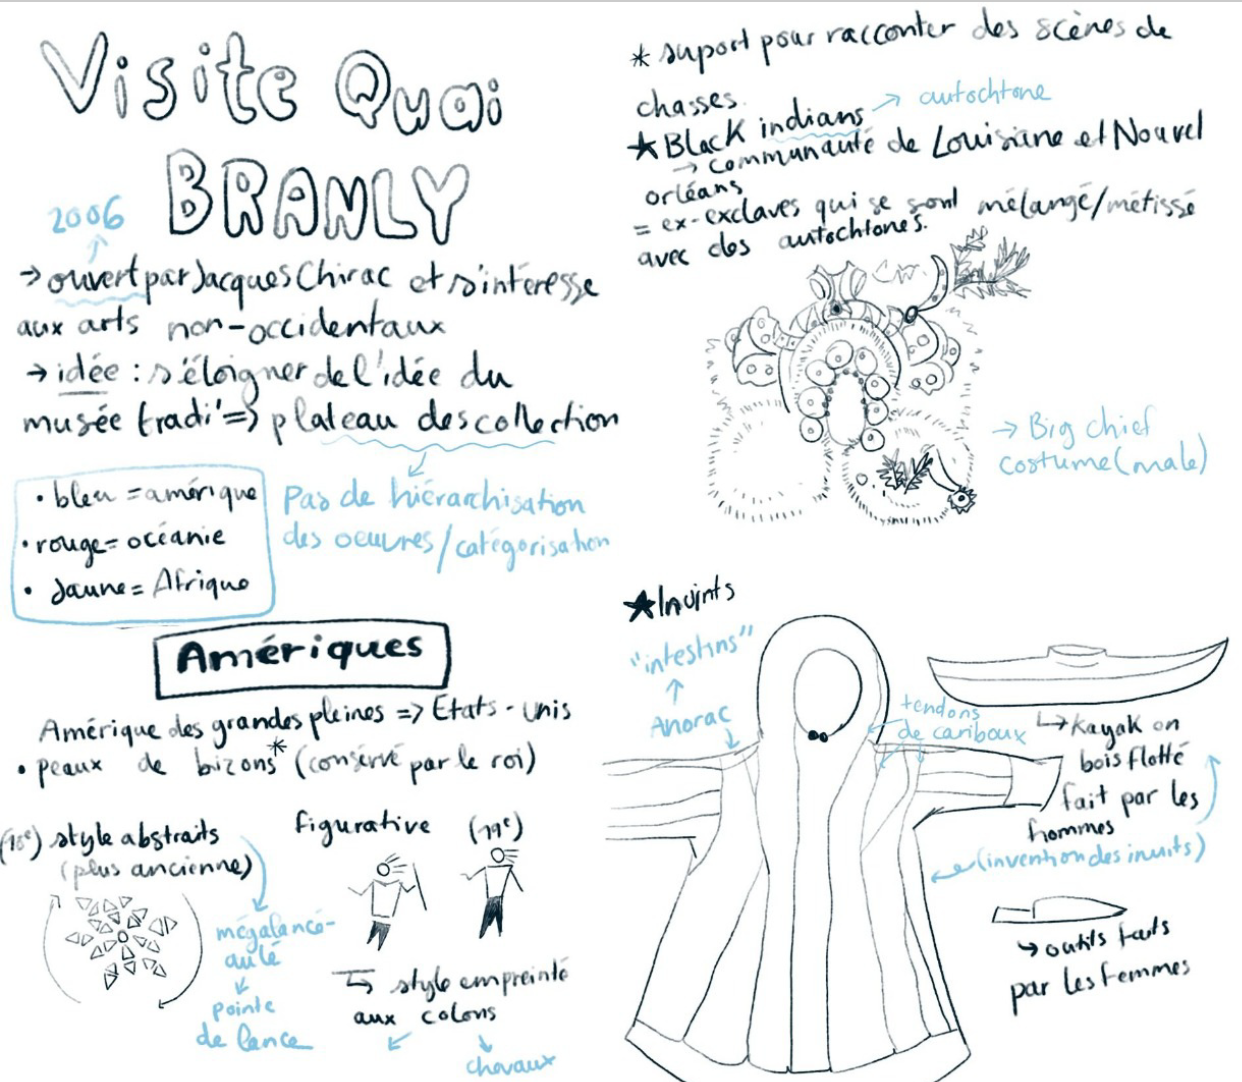 Visite Quai
BRANLY
2006
→ ouvert par Jacques Chirac et s'intéresse
aux arts non-occidentaux
→ idée : s'éloigner de l'idée du
musée tradi' => plateau des collection
• bleu = amérique
• rouge = océanie
• Jaune = Afrique
Pas de hiérarchisation
des oeuvres / catégorisation
Amériques
Amérique des grandes pleines => Etats-unis
• peaux de bizons* (consérvé par le roi)
(18e) style abstraits
(plus ancienne)
mégalancé-
auté
pointe
de lance
figurative (19e)
style empreinté
aux colons
chevaux
* suport pour racconter des scènes de
chasses.
★ Black indians → autochtone
→ communauté de Louisiane et Nouvel
orléans
= ex-exclaves qui se sont mélangé/métissé
avec des autochtones.
→ Big chief
costume (male)
★ Inuints
"intestins"
Anorac
tendons
de cariboux
Kayak en
bois flotté
fait par les
hommes
(invention des inuits)
outils faits
par les femmes